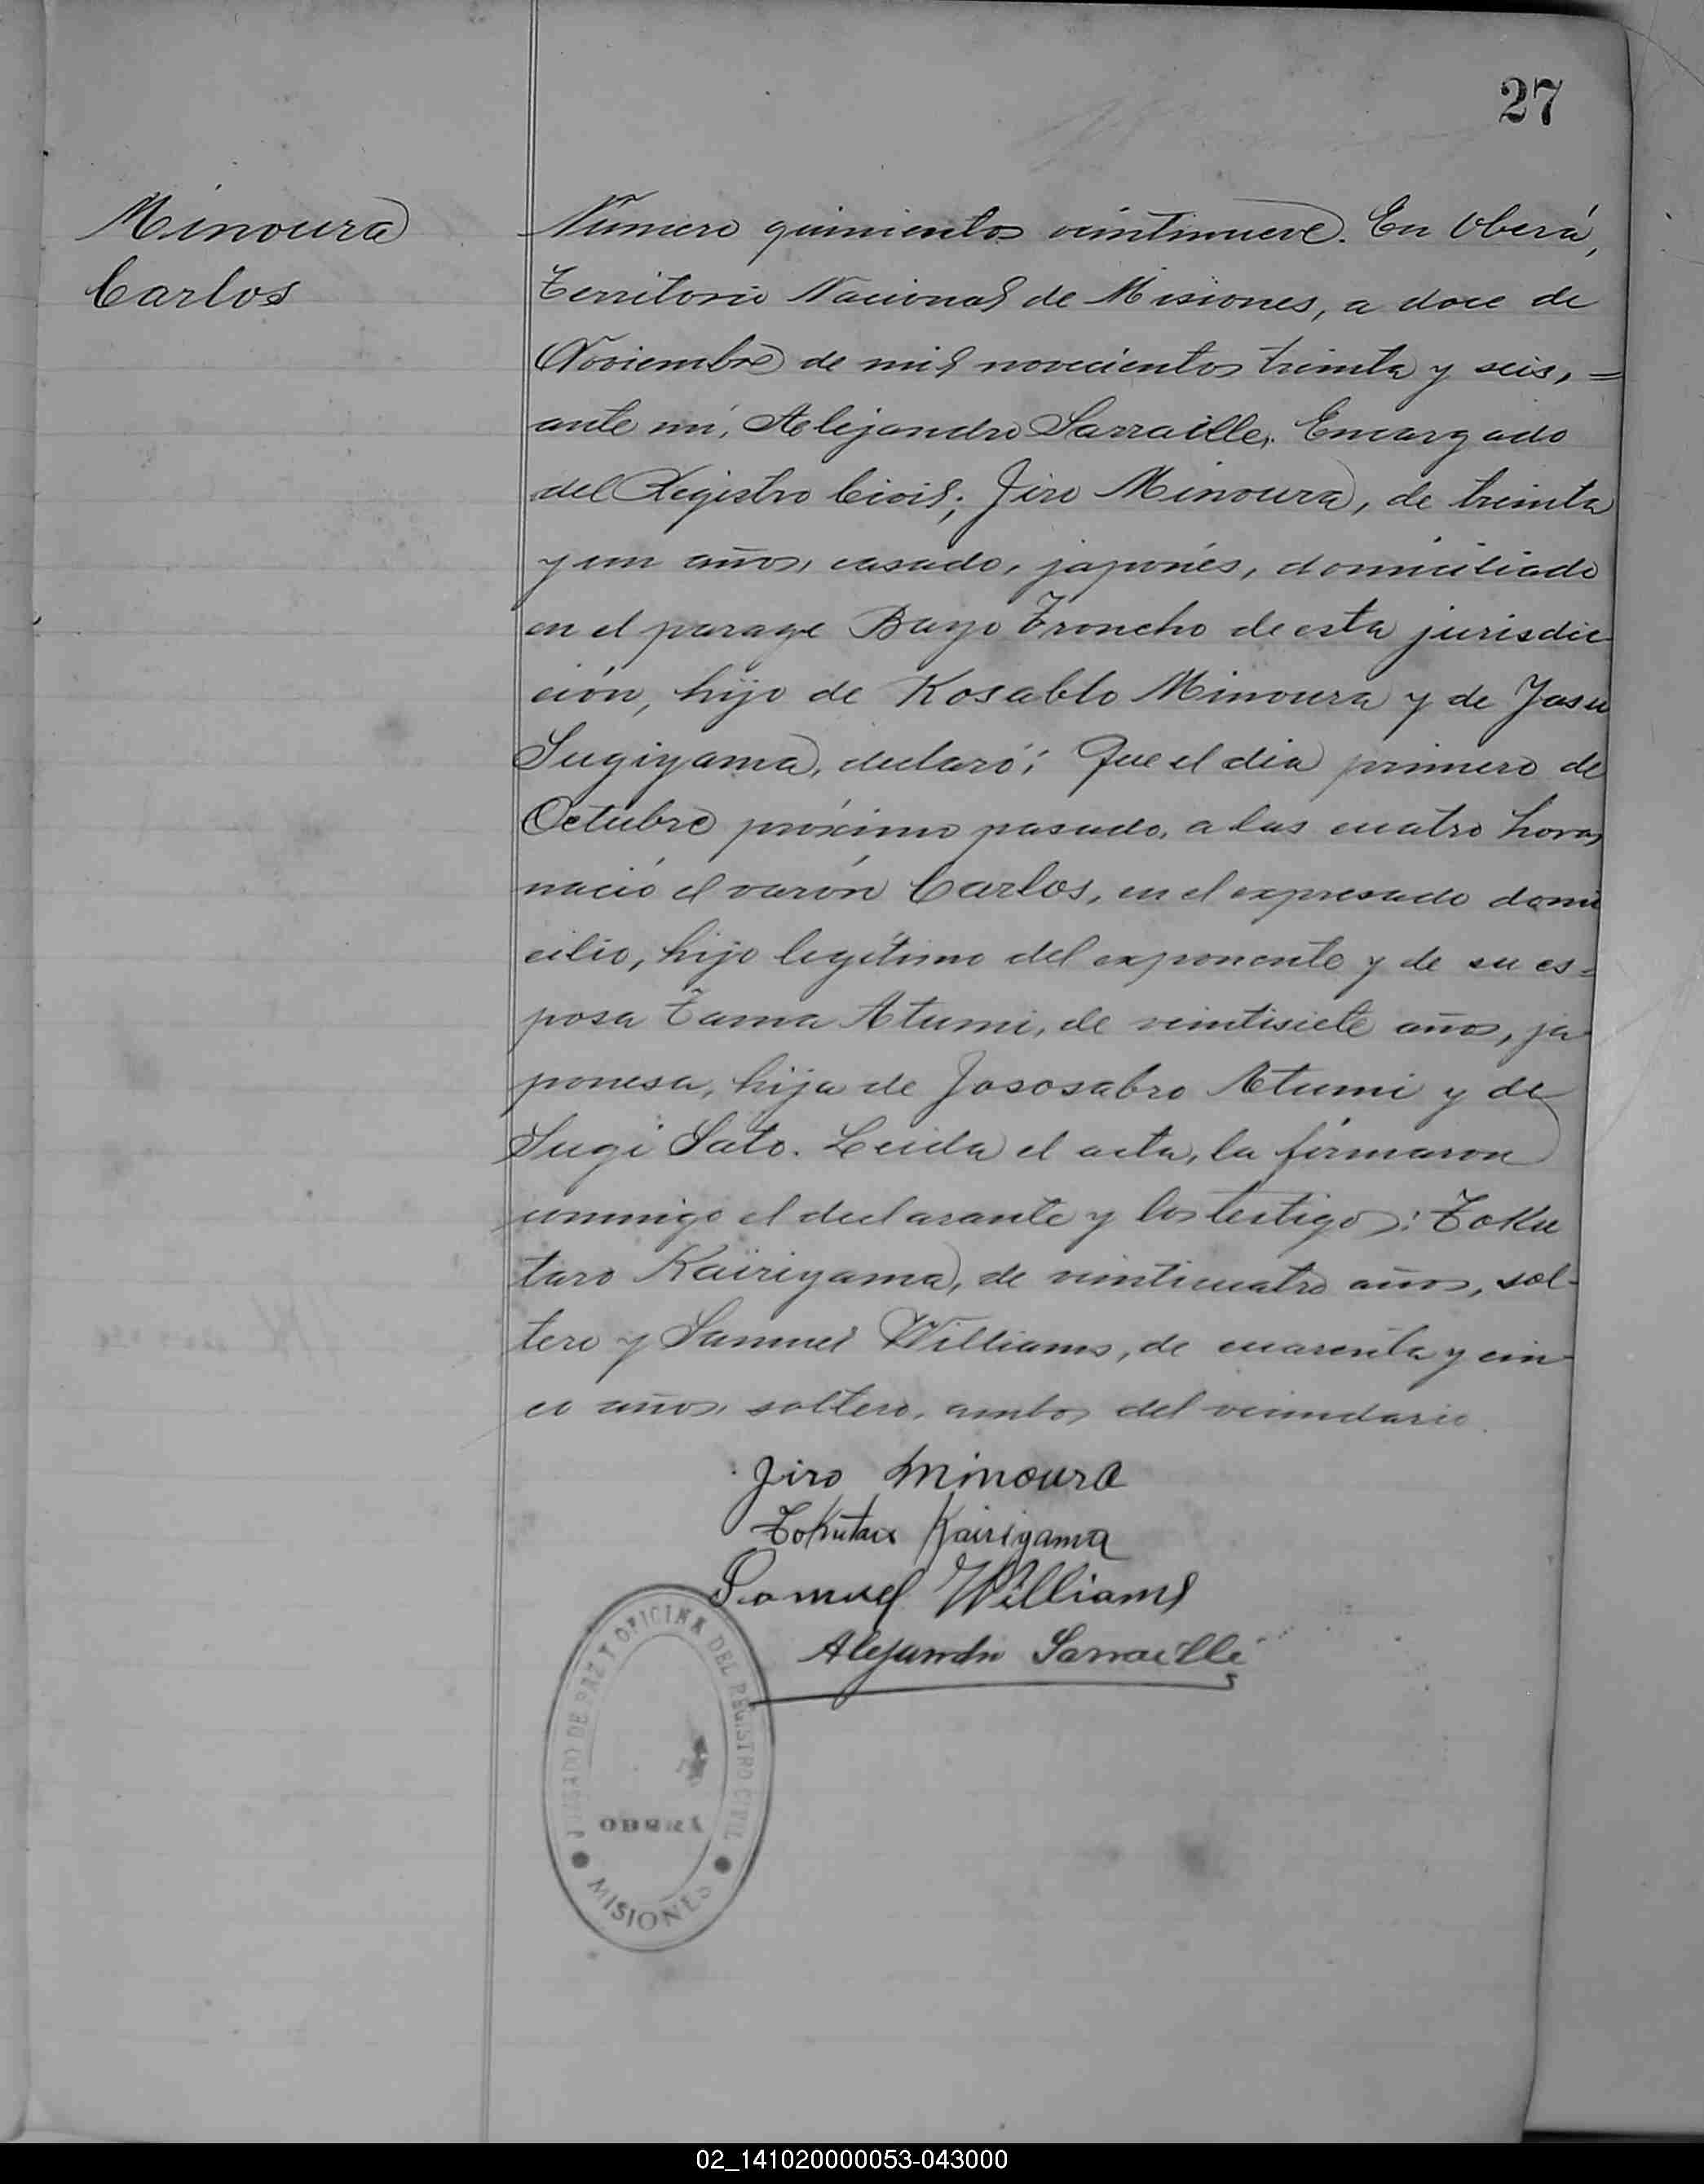 27
Minoura
Carlos
Número quinientos veintinueve. En Oberá,
Territorio Nacional de Misiones, a doce de
Noviembre de mil novecientos treinta y seis, =
ante mí, Alejandro Sarraille, Encargado
del Registro Civil; Jiro Minoura, de treinta
y un años, casado, japonés, domiciliado
en el parage Bayo Troncho de esta jurisdic-
ción, hijo de Kosablo Minoura y de Jasu
Sugiyama, declaró: Que el dia primero de
Octubre próximo pasado, a las cuatro horas
nació el varón Carlos, en el expresado domi
cilio, hijo legítimo del exponente y de su es=
posa Tama Atumi, de veintisiete años, ja-
ponesa, hija de Jososabro Atumi y de
Sugi Sato. Leida el acta, la firmaron
conmigo el declarante y los testigos: Toku
taro Kairiyama, de veinticuatro años, sol-
tero y Samuel Williams, de cuarenta y cin-
co años, soltero, ambos del vecindario.
Jiro Minoura
Tokutaro Kairiyama
Samuel Williams
Alejandro Sarraille
JUZGADO DE PAZ Y OFICINA DEL REGISTRO CIVIL
OBERA
MISIONES
02_141020000053-043000